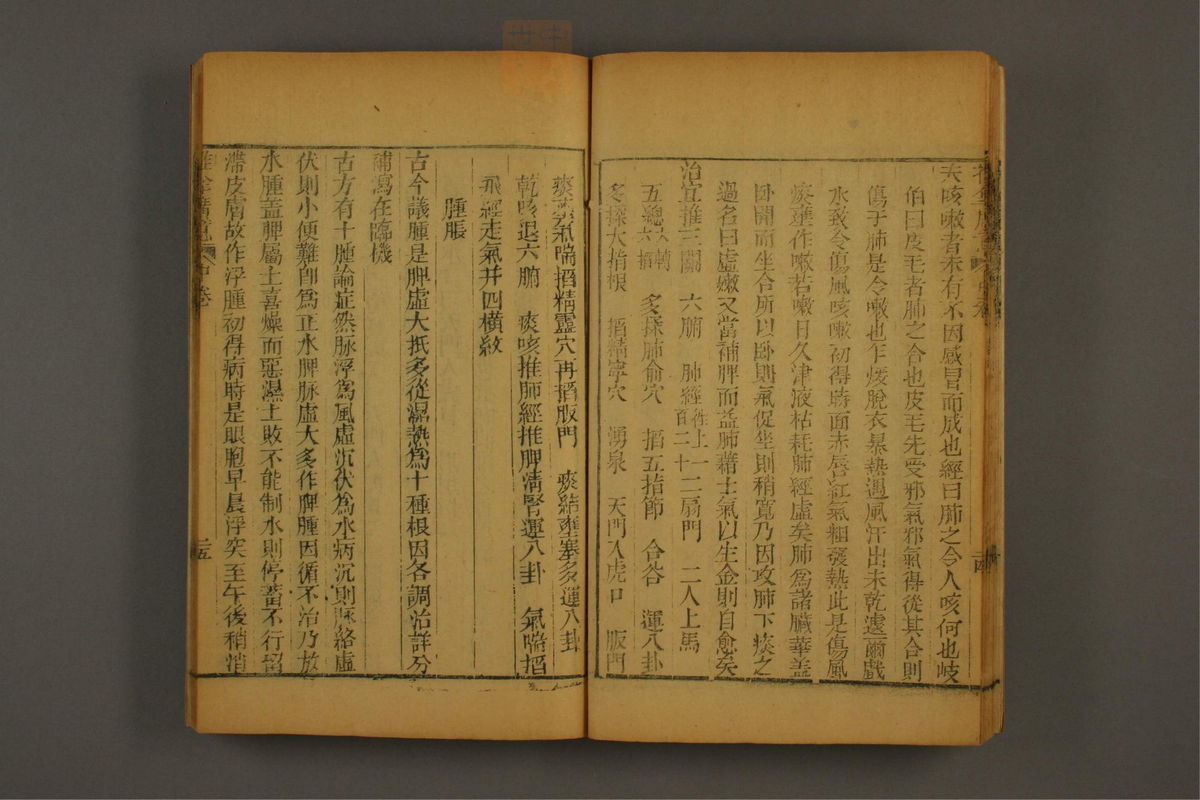 夫咳嗽者未有不因感冒而成也經曰肺之令人咳何也岐
伯曰皮毛者肺之合也皮毛先受邪氣邪氣得從其合則
傷于肺是令嗽也乍煖脫衣暴熱遇風汗出未乾遽爾戲
水致令傷風咳嗽初得時面赤唇紅氣粗發熱此是傷風
痰壅作嗽若嗽日久津液枯耗肺經虛矣肺為諸臟華盖
卧開而坐合所以卧則氣促坐則稍寬乃因攻肺下痰之
過名曰虛嗽又當補脾而益肺藉土氣以生金則自愈矣
治宜推三關 六腑 肺經往上一百二十 二扇門 二人上馬
五總六轉六掐 多揉肺俞穴 掐五指節 合谷 運八卦
多揉大指根 掐精寧穴 湧泉 天門入虎口 版門
痰壅氣喘掐精靈穴再掐版門 痰結壅塞多運八卦
乾咳退六腑 痰咳推肺經推脾清腎運八卦 氣喘掐
飛經走氣并四橫紋
腫脹
古今議腫是脾虛大抵多從濕熱為十種根因各調治詳分
補瀉在臨機
古方有十腫論症然脉浮為風虛沉伏為水病沉則脉絡虛
伏則小便難即為正水脾脉虛大多作脾腫因循不治乃成
水腫盖脾屬土喜燥而惡濕土敗不能制水則停畜不行留
滯皮膚故作浮腫初得病時是眼胞早晨浮突至午後稍消
二五